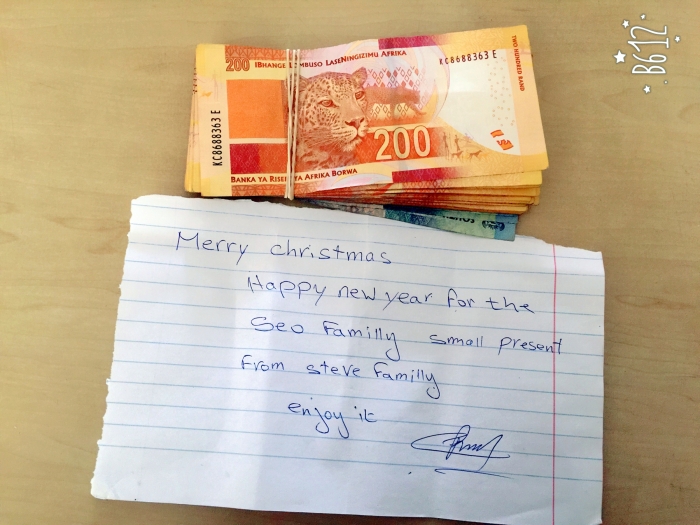 B612
200 IBHANGE LOMBUSO LASENINGIZIMU AFRIKA
KC8688363 E
TWO HUNDRED RAND
KC8688363 E
200
BANKA YA AFRIKA BORWA
Merry christmas
Happy new year for the
Seo Familly small present
From steve familly
enjoy it